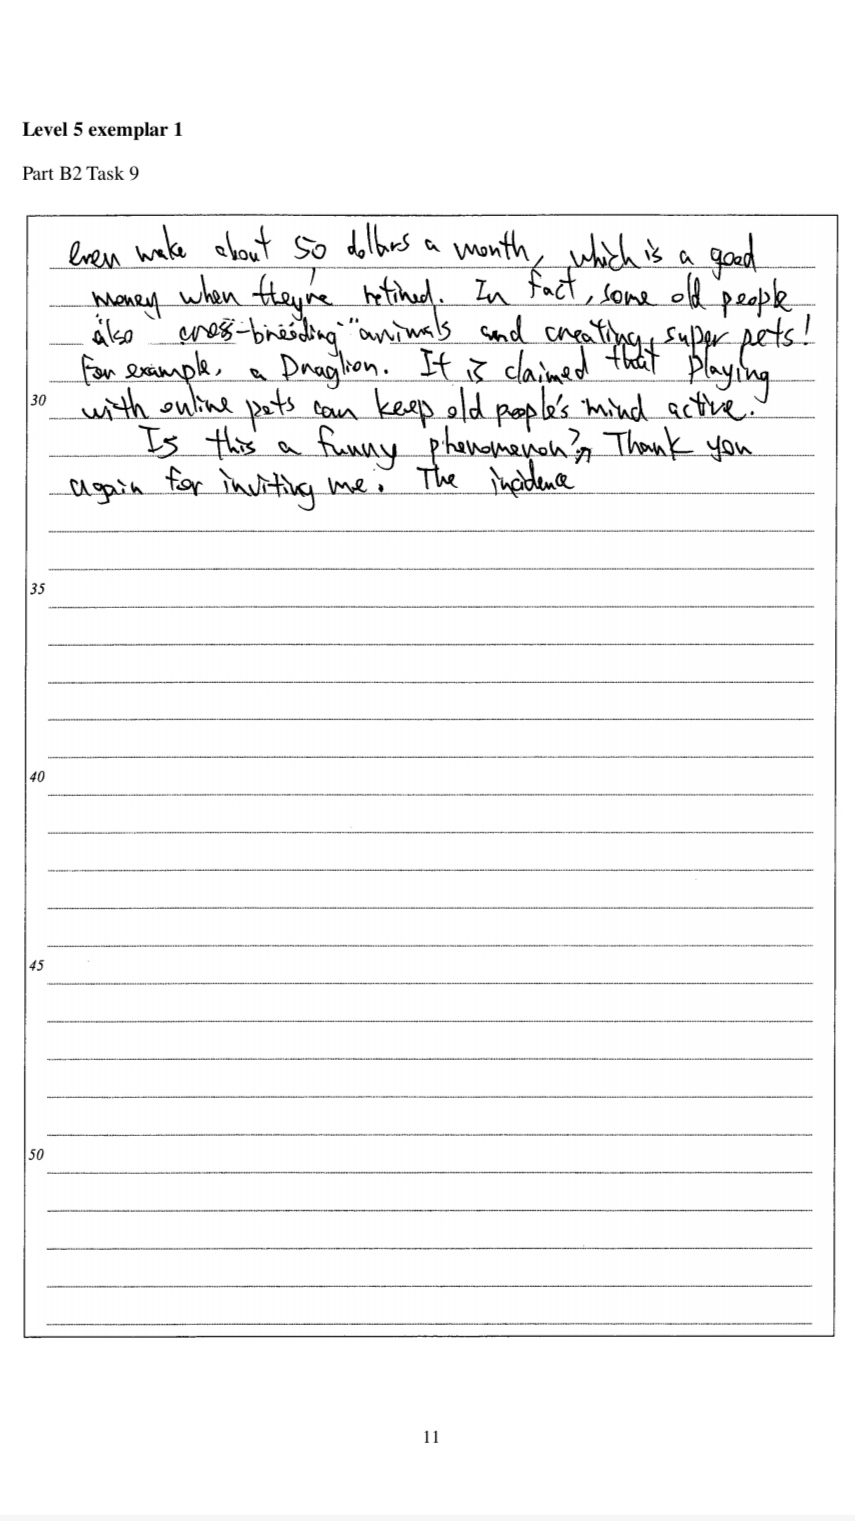 Level 5 exemplar 1
Part B2 Task 9
even make about 50 dollars a month, which is a good
money when they're retired. In fact, some old people
also "cross-breeding" animals and creating super pets!
For example, a Draglion. It is claimed that playing
30 with online pets can keep old people's mind active.
Is this a funny phenomenon? Thank you
again for inviting me. The incidence
35
40
45
50
11